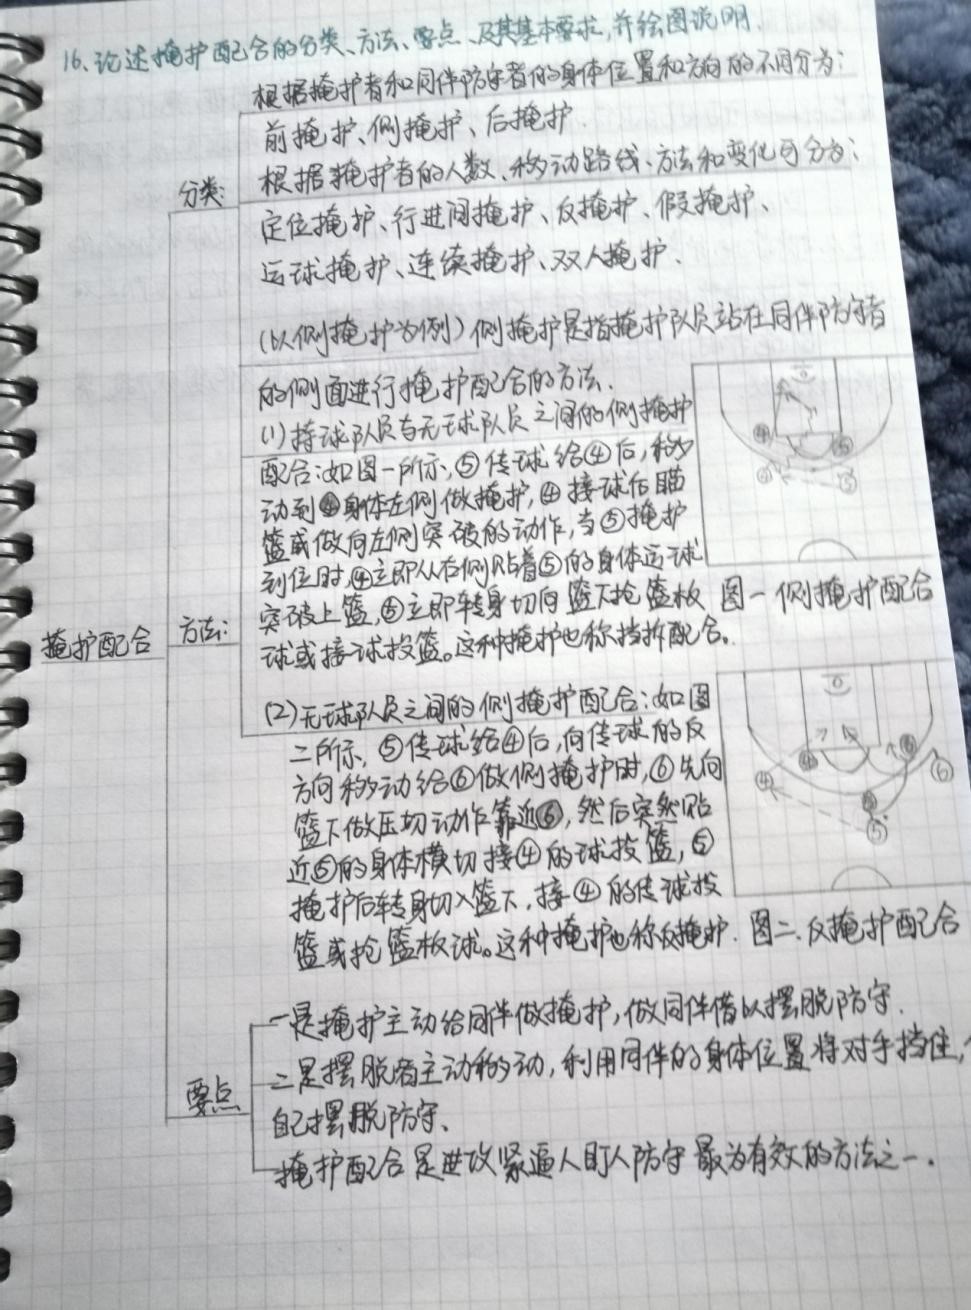 16、论述掩护配合的分类、方法、要点、及其基本要求,并绘图说明.
根据掩护者和同伴防守者的身体位置和方向的不同分为:
前掩护、侧掩护、后掩护.
根据掩护者的人数、移动路线、方法和变化可分为:
分类:
定位掩护、行进间掩护、反掩护、假掩护、
运球掩护、连续掩护、双人掩护.
(以侧掩护为例)侧掩护是指掩护队员站在同伴防守者
的侧面进行掩护配合的方法.
(1)持球队员与无球队员之间的侧掩护
配合:如图一所示,⑤传球给④后,移动
动到④身体左侧做掩护,④接球后瞄
篮或做向左侧突破的动作,当⑤掩护
到位时,④立即从右侧贴着⑤的身体运球
突破上篮,⑤立即转身切向篮下抢篮板
球或接球投篮。这种掩护也称挡拆配合。
图一 侧掩护配合
掩护配合
方法:
(2)无球队员之间的侧掩护配合:如图
二所示,⑤传球给④后,向传球的反
方向移动给⑥做侧掩护时,⑥先向
篮下做压切动作靠近⑥,然后突然贴
近⑤的身体横切接④的球投篮,⑤
掩护后转身切入篮下,接④的传球投
篮或抢篮板球。这种掩护也称反掩护.
图二.反掩护配合
要点
一是掩护主动给同伴做掩护,做同伴借以摆脱防守.
二是摆脱者主动移动,利用同伴的身体位置将对手挡住,
自己摆脱防守、
掩护配合是进攻紧逼人盯人防守最为有效的方法之一.